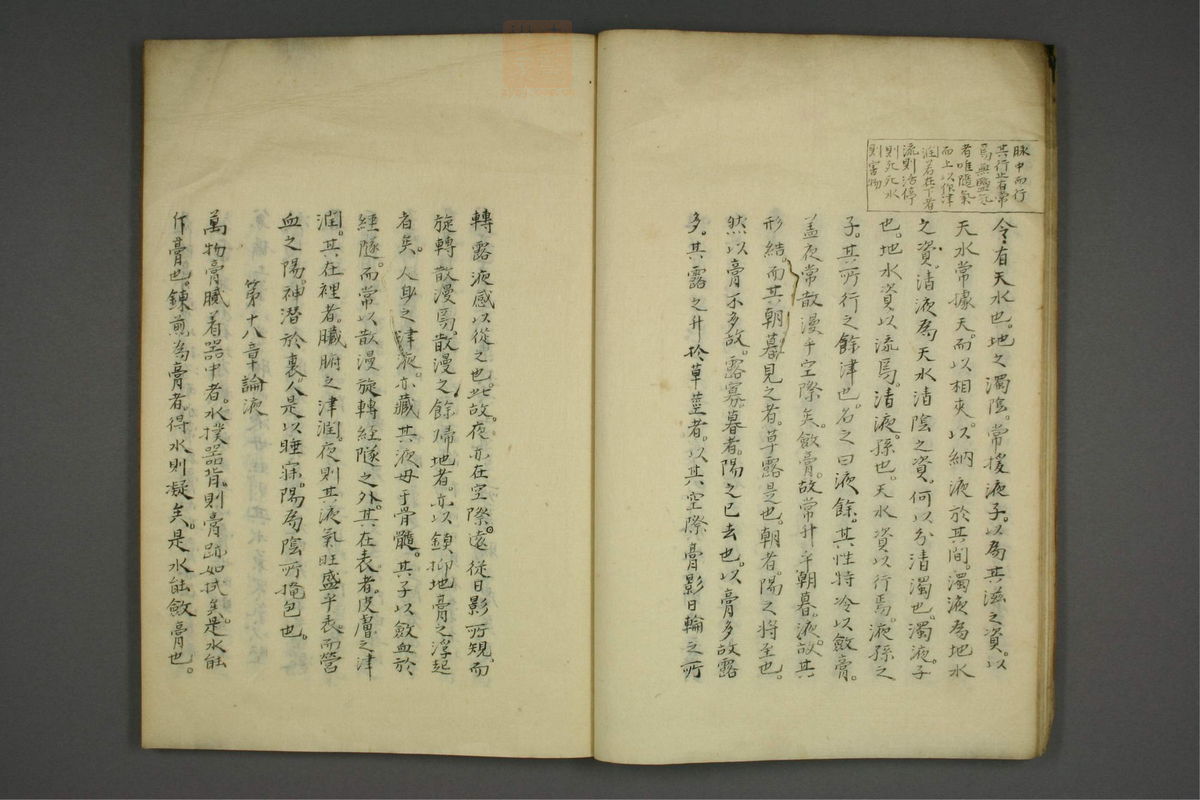 脉中而行
其行止有常
焉無盬元
者唯隨氣
而上以保津
涯若在下者
流則活停
則死死水
則害物
令有天水也。地之濁陰。常援液子。以為其滋之資。以
天水常據天。而以相夾。以納液於其間。濁液為地水
之資。清液為天水清陰之資。何以分清濁也。濁液子
也。地水資以流焉。清液孫也。天水資以行焉。液孫之
子。其所行之餘津也。名之曰液餘。其性特冷以斂膏。
盖夜常散漫于空際矣。斂膏。故常升乎朝暮。液。故其
形結。而其朝暮見之者。草露是也。朝者。陽之將至也。
然以膏不多故。露寡。暮者。陽之已去也。以膏多故露
多。其露之升於草莖者。以其空際膏影日輪之所
轉露液感以從之也。此故。夜亦在空際。遠從日影所規。而
旋轉散漫焉。散漫之餘歸地者。亦以鎮抑地膏之浮起
者矣。人身之津液。亦藏其液母于骨髓。其子以斂血於
經隧。而常以散漫旋轉經隧之外。其在表者。皮膚之津
潤。其在裡者。臟腑之津潤。夜則其液氣旺盛乎表。而營
血之陽。神潜於裏。人是以睡寐。陽為陰所掩包也。
第十八章論液
萬物膏膩着器中者。水撲器背。則膏跡如拭矣。是水能
作膏也。鍊煎為膏者。得水則凝矣。是水能斂膏也。